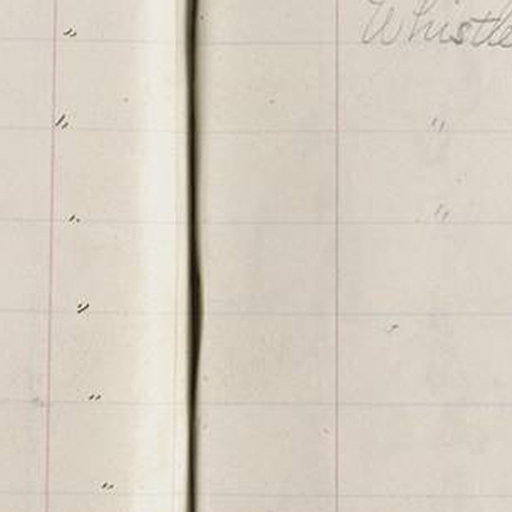 "
Whistle
"
"
"
"
"
"
"